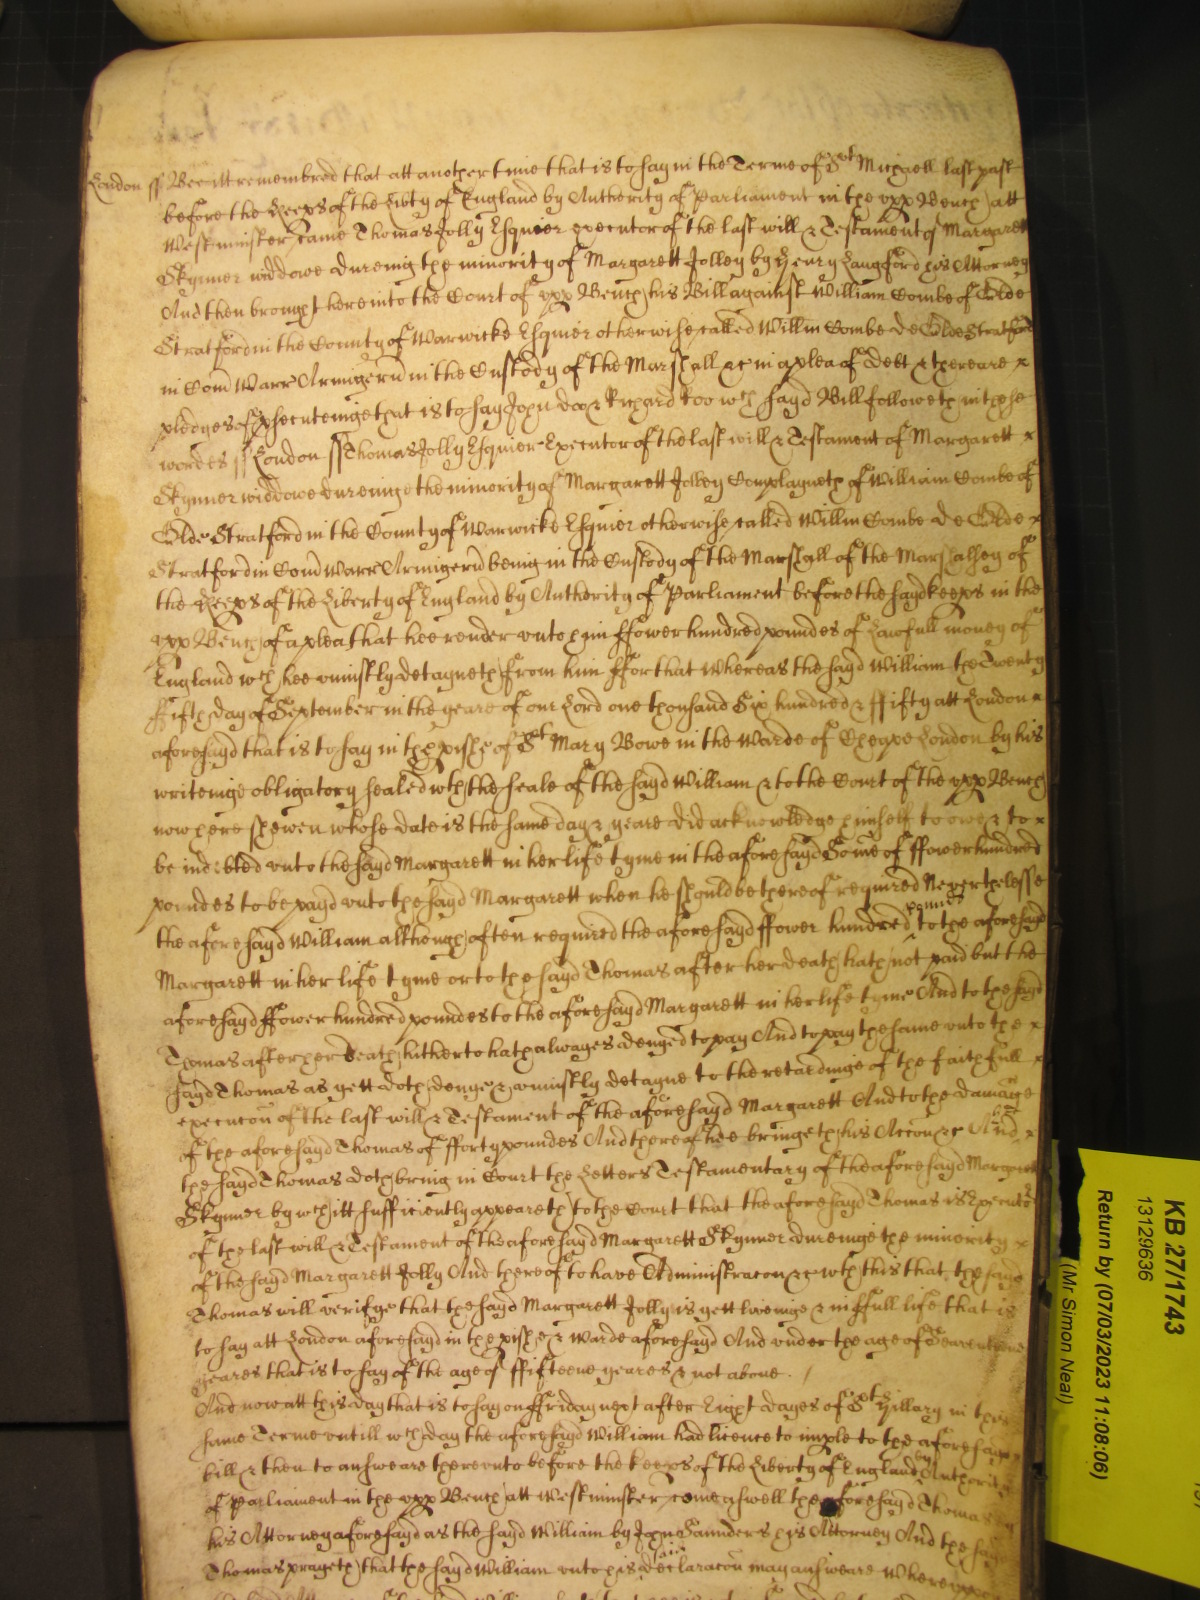 London ss Bee itt remembred that att another time that is to say in the Terme of St Michaell last past
before the Keeps of the Libty of England by Authority of Parliament in the vpp Bench att
Westminster came Thomas Jolly Esquier executor of the last will & Testament of Margarett
Skynner widdowe dureing the minority of Margarett Jolley by Henry Langford his Attorney
And then brought here into the Court of vpp Bench his Bill against William Combe of Olde
Stratford in the County of Warwicke Esquier otherwise called Willm Combe de Olde Stratford
in Com Warr Armigeru in the Custody of the Marshall &c in a plea of debt & there are x
pledges of psecuteinge that is to say John doo & Richard Roo wch sayd Bill followeth in these
wordes ss London ss Thomas Jolly Esquier Executor of the last will & Testament of Margarett x
Skynner widdowe dureinge the minority of Margarett Jolley Complayneth of William Combe of
Olde Stratford in the County of Warwicke Esquier otherwise called Willm Combe de Olde x
Stratford in Com Warr Armigeru being in the Custody of the Marshall of the Marshalsey of
the Keeps of the Liberty of England by Authority of Parliament before the sayd keeps in the
vpp Bench of a plea that hee render vnto him ffower hundred poundes of Lawfull money of
England wch hee vniustly detayneth from him ffor that Whereas the sayd William the Twenty
ffifth day of September in the yeare of our Lord one thousand Six hundred & ffifty att London x
aforesayd that is to say in the pishe of St Mary Bowe in the Warde of Cheape London by his
writeinge obligatory sealed wth the seale of the sayd William & to the Court of the vpp Bench
now here shewen whose date is the same day & yeare did acknowledge himself to owe & to x
be indebted vnto the sayd Margarett in her life tyme in the aforesayd Some of ffower hundred
poundes to be payd vnto the sayd Margarett when he should be thereof required Neverthelesse
the aforesayd William although often required the aforesayd ffower hundred pounds to the aforesayd
Margarett in her life tyme or to the sayd Thomas after her death hath not paid but the
aforesayd ffower hundred poundes to the aforesayd Margarett in her life tyme And to the sayd
Thomas after her death hitherto hath alwayes denyed to pay And to pay the same vnto the x
sayd Thomas as yett doth denye & vniustly detayne to the retardinge of the faithfull x
execucon of the last will & Testament of the aforesayd Margarett And to the damage
of the aforesayd Thomas of fforty poundes And thereof hee bringeth his Accon &c And x
the sayd Thomas doth bring in Court the Letters Testamentary of the aforesayd Margarett
Skynner by wch itt sufficiently appeareth to the Court that the aforesayd Thomas is Executor
of the last will & Testament of the aforesayd Margarett Skynner dureinge the minority x
of the sayd Margarett Jolly And thereof to have Administracon &c wth this that the sayd
Thomas will verifye that the sayd Margarett Jolly is yett liveinge & in ffull life that is
to say att London aforesayd in the pishe & Warde aforesayd And vnder the age of Seaventeene
yeares that is to say of the age of ffifteene yeares & not above.
And now att this day that is to say on ffriday next after Eight dayes of St Hillary in this
same Terme vntill wch day the aforesayd William had licence to imple to the aforesayd
bill & then to answeare therevnto before the keeps of the Liberty of England by Authority
of Parliament in the vpp Bench att Westminster come aswell the aforesayd Thomas by
his Attorney aforesayd as the sayd William by John Saunders his Attorney And the sayd
Thomas prayeth that the sayd William vnto his said declaracon may answeare Where vppon
KB 27/1743
13129636
Return by (07/03/2023 11:08:06)
(Mr Simon Neal)